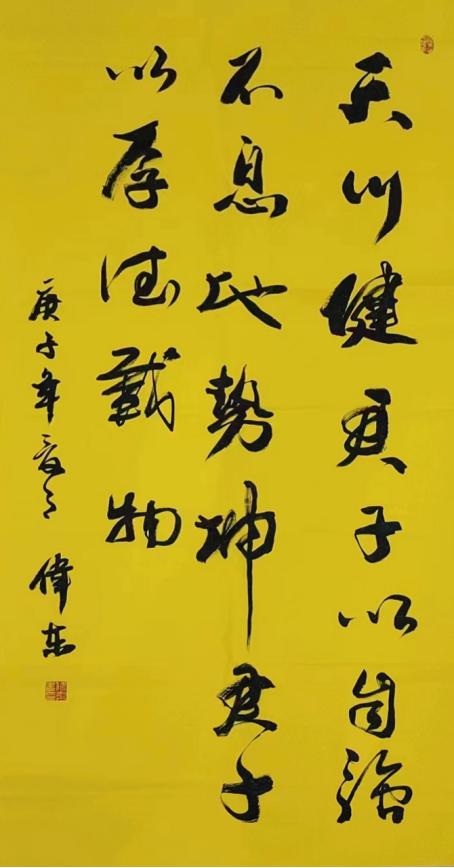 天行健君子以自強
不息地势坤君子
以厚德載物
庚子年夏月 偉東